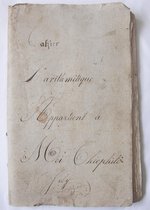 Cahier
D'arithmétique
Appartient à
Moi Théophile